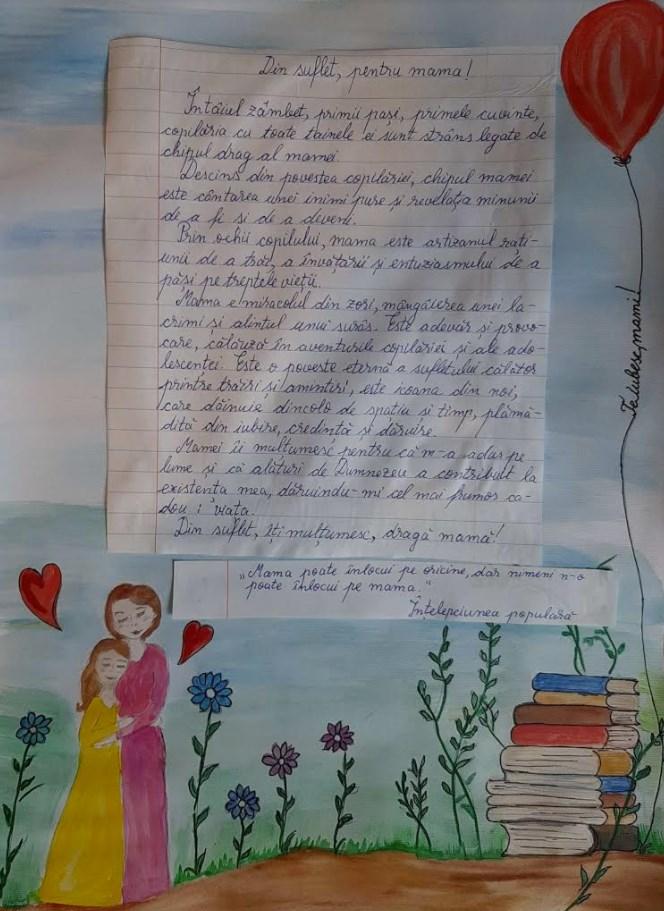 Din suflet, pentru mama!
Întâiul zâmbet, primii pași, primele cuvinte,
copilăria cu toate tainele ei sunt strâns legate de
chipul drag al mamei.
Descins din povestea copilăriei, chipul mamei
este cântarea unei inimi pure și revelația minunii
de a fi si de a deveni.
Prin ochii copilului, mama este artizanul rați-
unii de a trăi, a învățării și entuziasmului de a
păși pe treptele vieții.
Mama e miracolul din zori, mângâierea unei la-
crimi și alintul unui surâs. Este adevăr și provo-
care, călăuză în aventurile copilăriei și ale ado-
lescenței. Este o poveste eternă a sufletului călător
printre trăiri și amintiri, este icoana din noi,
care dăinuie dincolo de spațiu si timp, plămă-
dită din iubire, credință și dăruire.
Mamei îi mulțumesc pentru că m-a adus pe
lume și că alături de Dumnezeu a contribuit la
existența mea, dăruindu-mi cel mai frumos ca-
dou: viața.
Din suflet, îți mulțumesc, dragă mamă!
„Mama poate înlocui pe oricine, dar nimeni n-o
poate înlocui pe mama."
Înțelepciunea populară
Te iubesc, mami!